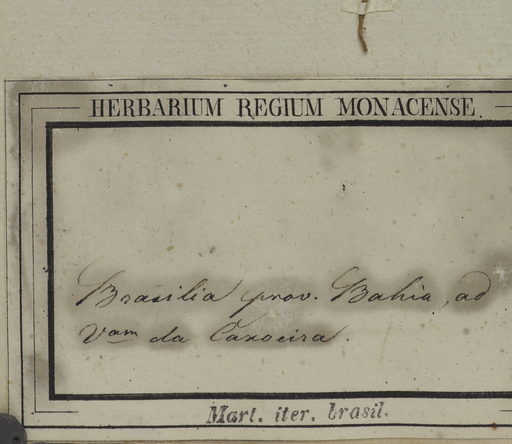 HERBARIUM REGIUM MONACENSE.
Brasilia prov. Bahia, ad
Vam da Caxoeira.
Mart. iter. brasil.